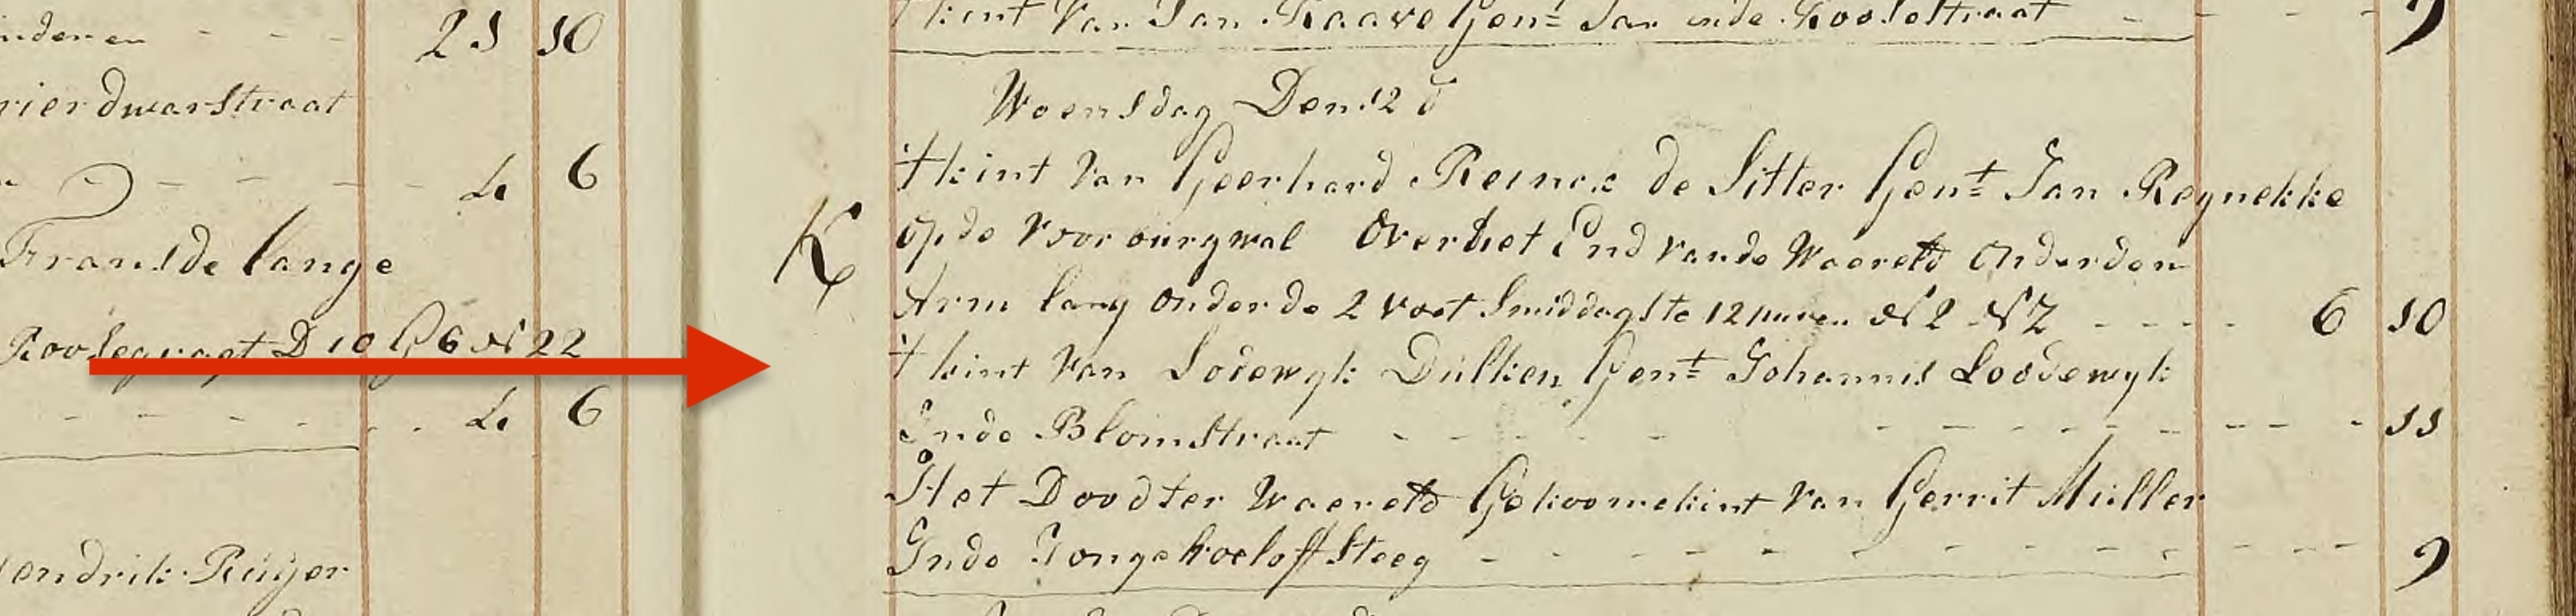 nderen - - - 21 10
rier dwarstraat
- - - - L. 6
Frans de lange
Roosegragt D 10 G 6 N 22
- - - - - L. 6
endrik Ruijer
't kint Van Jan Raave Gent Jan inde Rooseltraat - - - 9
Woensdag Den 12 d
't kint Van Geerhard de Sitter Gent Jan Reynekke
K op de Voor burgwal Over het End vande Waereld Onder den
Arm lang onder de 2 voet Smiddags te 12 uuren N 2 N 2 - - - - 6 10
't kint Van Lodewyk Dulken Gent Johannis Loodewyk
Inde Blomstraat - - - - - - - - - 11
Het Dood ter Waereld Gekoome kint Van Gerrit Muller
Inde Jonge Roeloff Steeg - - - - - - - - - 9